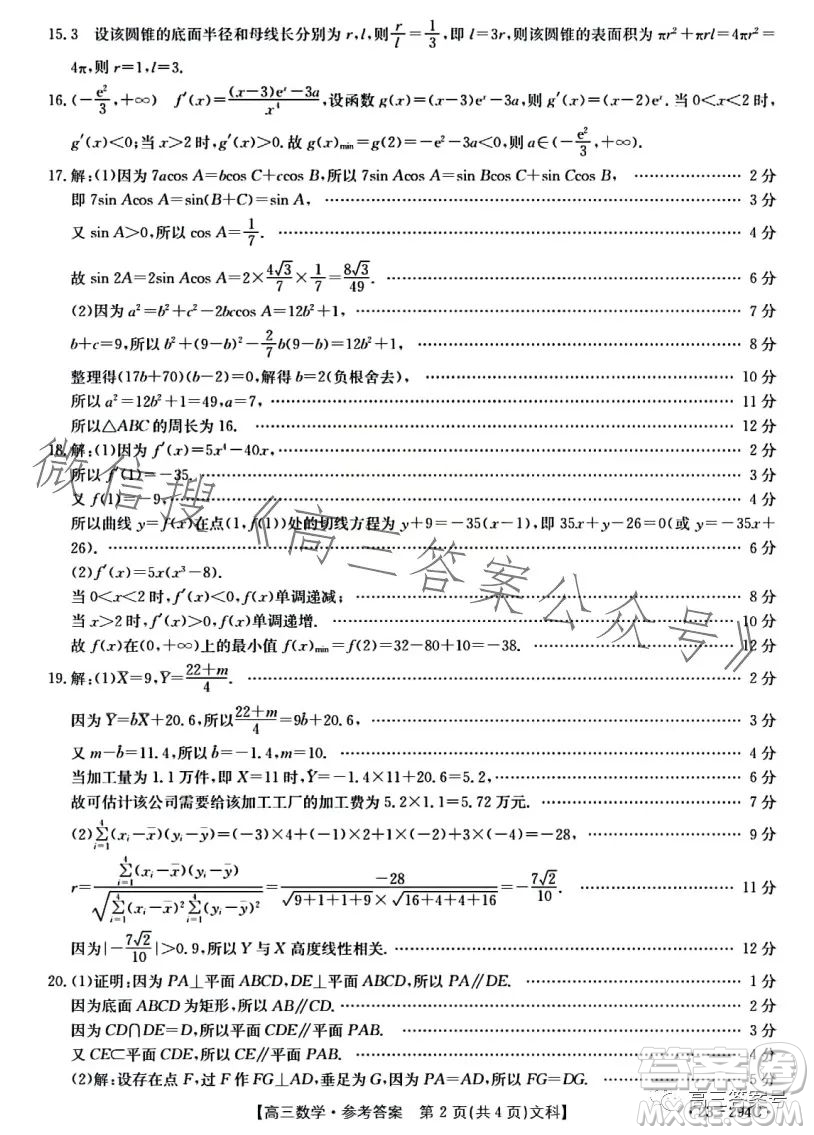 15. 3 设该圆锥的底面半径和母线长分别为 r,l,则r/l=1/3,即 l=3r,则该圆锥的表面积为 πr²+πrl=4πr²=
4π,则 r=1,l=3.
16. (-e²/3,+∞) f′(x)=((x-3)eˣ-3a)/x⁴,设函数 g(x)=(x-3)eˣ-3a,则 g′(x)=(x-2)eˣ. 当 0<x<2 时,
g′(x)<0;当 x>2 时,g′(x)>0. 故 g(x)min=g(2)=-e²-3a<0,则 a∈(-e²/3,+∞).
17. 解:(1)因为 7acos A=bcos C+ccos B,所以 7sin Acos A=sin Bcos C+sin Ccos B, ………………… 2 分
即 7sin Acos A=sin(B+C)=sin A, ………………… 3 分
又 sin A>0,所以 cos A=1/7. ………………… 4 分
故 sin 2A=2sin Acos A=2×4√3/7×1/7=8√3/49. ………………… 6 分
(2)因为 a²=b²+c²-2bccos A=12b²+1, ………………… 7 分
b+c=9,所以 b²+(9-b)²-2/7b(9-b)=12b²+1, ………………… 8 分
整理得(17b+70)(b-2)=0,解得 b=2(负根舍去), ………………… 10 分
所以 a²=12b²+1=49,a=7, ………………… 11 分
所以△ABC 的周长为 16. ………………… 12 分
18. 解:(1)因为 f′(x)=5x⁴-40x, ………………… 2 分
所以 f′(1)=-35. ………………… 3 分
又 f(1)=-9, ………………… 4 分
所以曲线 y=f(x)在点(1,f(1))处的切线方程为 y+9=-35(x-1),即 35x+y-26=0(或 y=-35x+
26). ………………… 6 分
(2)f′(x)=5x(x³-8).
当 0<x<2 时,f′(x)<0,f(x)单调递减; ………………… 8 分
当 x>2 时,f′(x)>0,f(x)单调递增. ………………… 10 分
故 f(x)在(0,+∞)上的最小值 f(x)min=f(2)=32-80+10=-38. ………………… 12 分
19. 解:(1)X̄=9,Ȳ=(22+m)/4. ………………… 2 分
因为 Ȳ=b̂X̄+20.6,所以(22+m)/4=9b̂+20.6, ………………… 3 分
又 m-b̂=11.4,所以 b̂=-1.4,m=10. ………………… 4 分
当加工量为 1.1 万件,即 X=11 时,Ŷ=-1.4×11+20.6=5.2. ………………… 6 分
故可估计该公司需要给该加工工厂的加工费为 5.2×1.1=5.72 万元. ………………… 7 分
(2)∑(i=1→4)(xᵢ-x̄)(yᵢ-ȳ)=(-3)×4+(-1)×2+1×(-2)+3×(-4)=-28, ………………… 9 分
r=∑(i=1→4)(xᵢ-x̄)(yᵢ-ȳ)/√(∑(i=1→4)(xᵢ-x̄)²∑(i=1→4)(yᵢ-ȳ)²)=-28/(√(9+1+1+9)×√(16+4+4+16))=-7√2/10. ………………… 11 分
因为|-7√2/10|>0.9,所以 Y 与 X 高度线性相关. ………………… 12 分
20. (1)证明:因为 PA⊥平面 ABCD,DE⊥平面 ABCD,所以 PA∥DE. ………………… 1 分
因为底面 ABCD 为矩形,所以 AB∥CD. ………………… 2 分
因为 CD∩DE=D,所以平面 CDE∥平面 PAB. ………………… 3 分
又 CE⊂平面 CDE,所以 CE∥平面 PAB. ………………… 4 分
(2)解:设存在点 F,过 F 作 FG⊥AD,垂足为 G,因为 PA=AD,所以 FG=DG. ………………… 5 分
【高三数学·参考答案 第 2 页(共 4 页)文科】
·23-294C·
微信搜《高三答案公众号》
高三答案号
答案圈
MXQE.COM